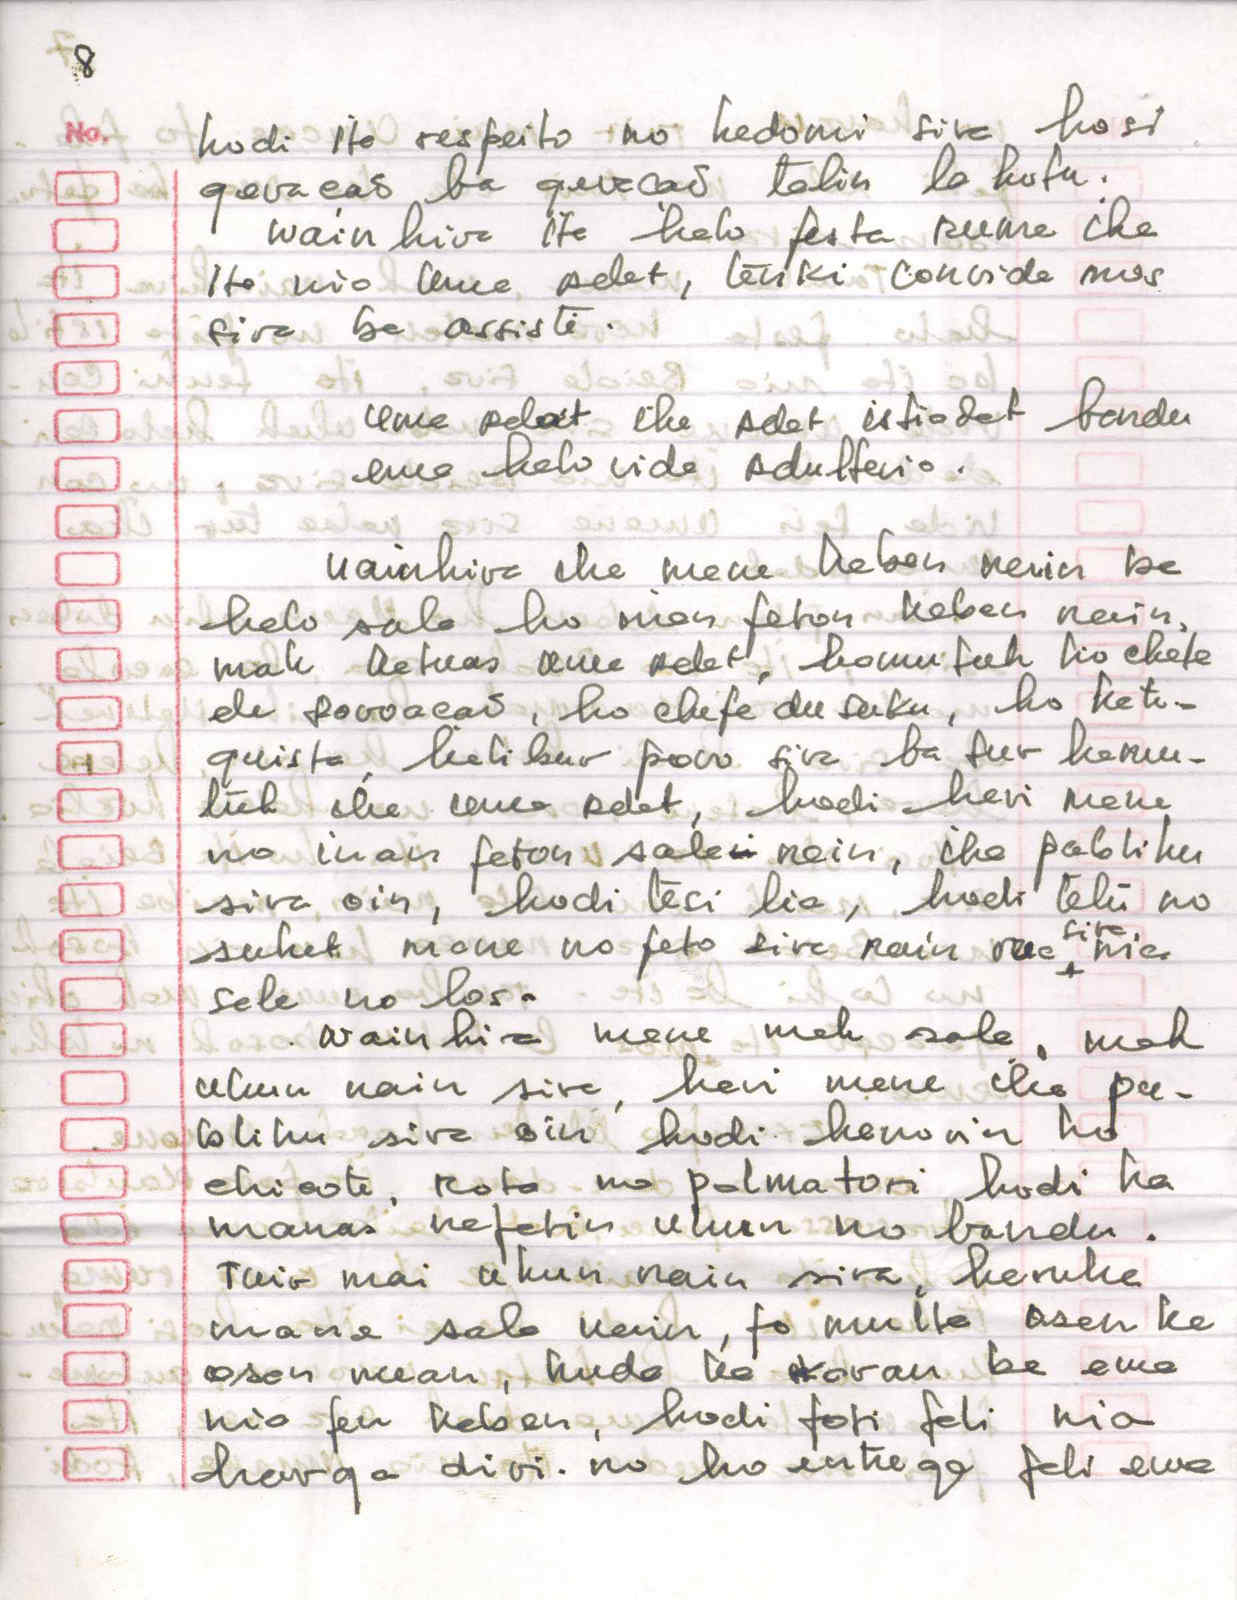 8
No.
hodi ita respeito no hadomi sira hosi
geracaõ ba geracaõ tolin la kotu.
Wainhira ita halo festa ruma iha
ita nia uma adat, tenki convida mos
sira ba assisti.
Uma adat iha adat istiadat bandu
ema halo vida adulterio.
Wainhira iha mane kaben nain ba
halo sala ho inan feton kaben nain,
mak katuas uma adat, hamutuk ho chefe
de Povoacaõ, ho chefe du suku, ho katu-
quista, halibur povo sira ba tur hamu-
tuk iha uma adat, hodi kari mane
no inan feton sala nain, iha publiku
sira oin, hodi tesi lia, hodi tetu no
suket mane no feto sira nain rua sira nia
sala no los.
Wainhira mane mak sala, mak
ukun nain sira, kari mane iha pu-
bliku sira oin hodi hanorin ho
chicote, rota no palmatori hodi ha
manas nafatin ukun no bandu.
Tuir mai ukun nain sira, haruka
mane sala nain, fo multa osan ka
osan mean, kuda ka karau ba ema
nia fen kaben, hodi foti fali nia
harga diri. no ho entrega fali ema